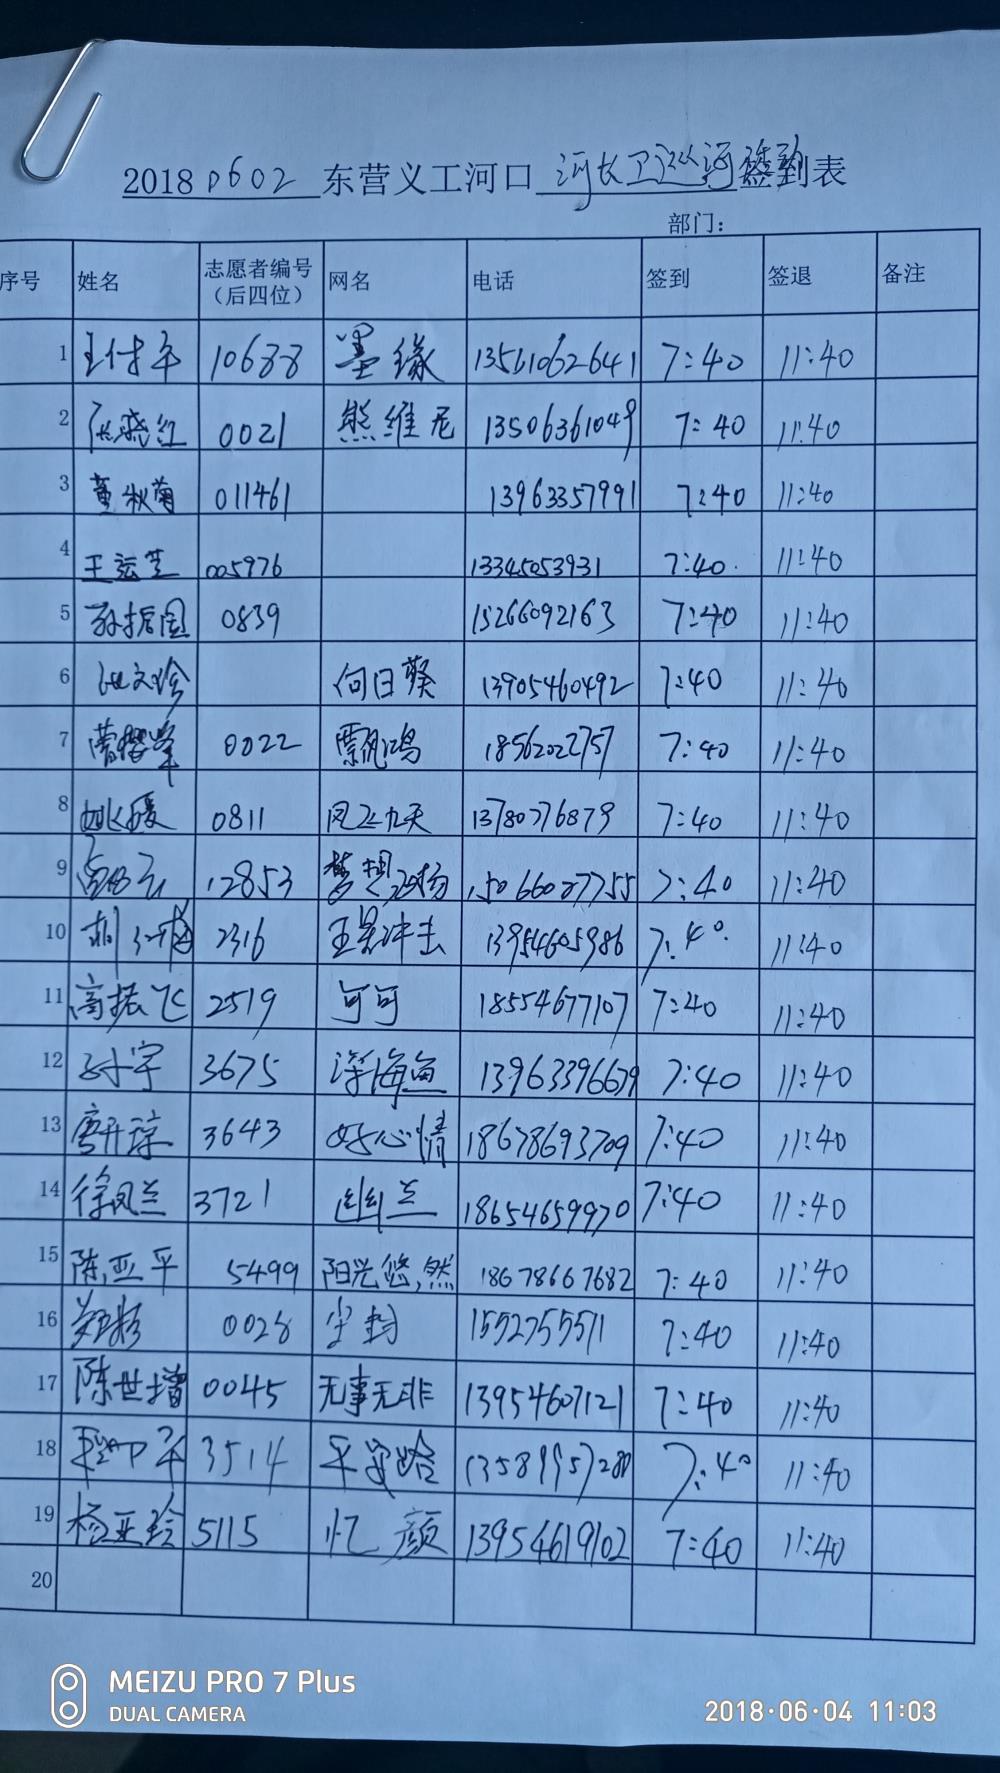 2018 0602 东营义工河口 河长卫巡河 签到表
部门:
序号 姓名 志愿者编号（后四位） 网名 电话 签到 签退 备注
1 王付平 10688 墨缘 13561062641 7:40 11:40
2 张晓红 0021 熊维尼 13506361049 7:40 11:40
3 董秋菊 011461 13963357991 7:40 11:40
4 王运芝 005976 13345053931 7:40 11:40
5 孙振国 0839 15266092163 7:40 11:40
6 向日葵 13905460492 7:40 11:40
7 0022 飘鸿 18562022757 7:40 11:40
8 姚媛 0811 凤飞九天 13780776879 7:40 11:40
9 12853 梦想飞扬 15066027755 7:40 11:40
10 2316 13954605986 7:40 11:40
11 高振飞 2519 可可 18554677107 7:40 11:40
12 孙宇 3675 深海鱼 13963396679 7:40 11:40
13 3643 好心情 18678693709 7:40 11:40
14 徐凤兰 3721 幽兰 18654659970 7:40 11:40
15 陈亚平 5499 阳光悠然 18678667682 7:40 11:40
16 0028 尘封 15527555711 7:40 11:40
17 陈世增 0045 无事无非 13954607121 7:40 11:40
18 3514 平安路 7:40 11:40
19 杨亚玲 5115 忆颜 13954619102 7:40 11:40
20
MEIZU PRO 7 Plus
DUAL CAMERA
2018·06·04 11:03